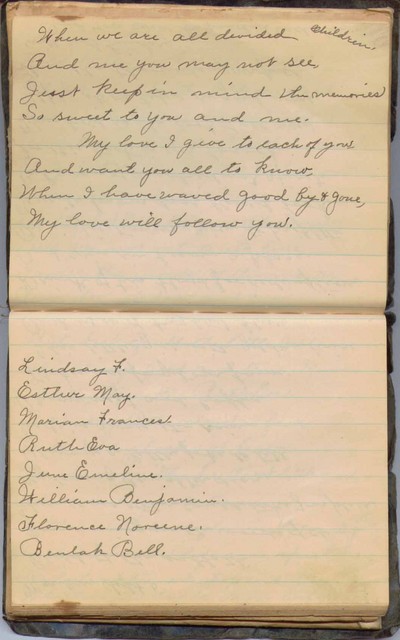 When we are all devided Childrin.
And me you may not see,
Just keep in mind the memories
So sweet to you and me.
My love I give to each of you
And want you all to know,
When I have waved good by & gone,
My love will follow you.
Lindsay F.
Esther May.
Marian Frances.
Ruth Eva
June Emeline.
William Benjamin.
Florence Noreene.
Beulah Bell.